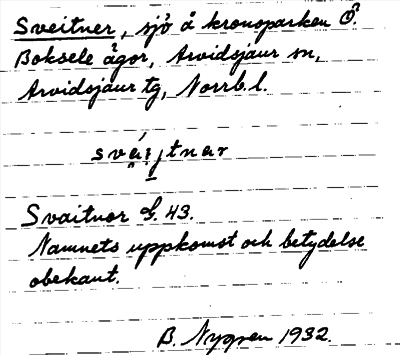 Sveitner, sjö å kronoparken Ö.
Boksele ägor, Arvidsjaur sn,
Arvidsjaur tg, Norrb. l.
svái̯tnar
Svaitnor G. 43.
Namnets uppkomst och betydelse
obekant.
B. Nygren 1932.